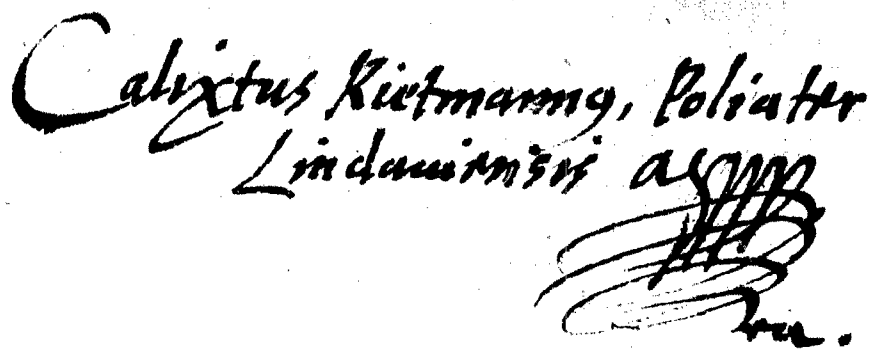 Calixtus Rietmannꝰ, Poliater
Lindauiensis